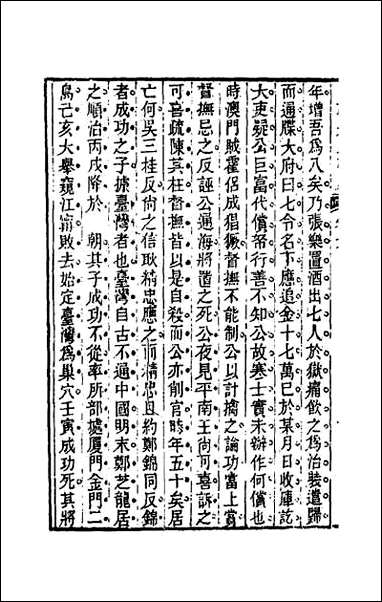 年增吾爲八矣乃張樂置酒出七人於獄痛飲之爲治裝遣歸
而遍牒大府曰七令名下應追金十七萬已於某月日收庫訖
大吏疑公巨富代償帑行善不知公故寒士實未辦作何償也
時澳門賊霍侶成猖獗督撫不能制公以計擒之論功當上賞
督撫忌之反誣公通海將置之死公夜見平南王尚可喜訴之
可喜疏陳其枉督撫皆以是自殺而公亦削官時年五十矣居
亡何吳三桂反尚之信耿精忠應之而精忠且約鄭錦同反錦
者成功之子據臺灣者也臺灣自古不通中國明末鄭芝龍居
之順治丙戌降於 朝其子成功不從率所部據厦門金門二
島己亥大舉窺江甯敗去始定臺灣爲巢穴壬寅成功死其將